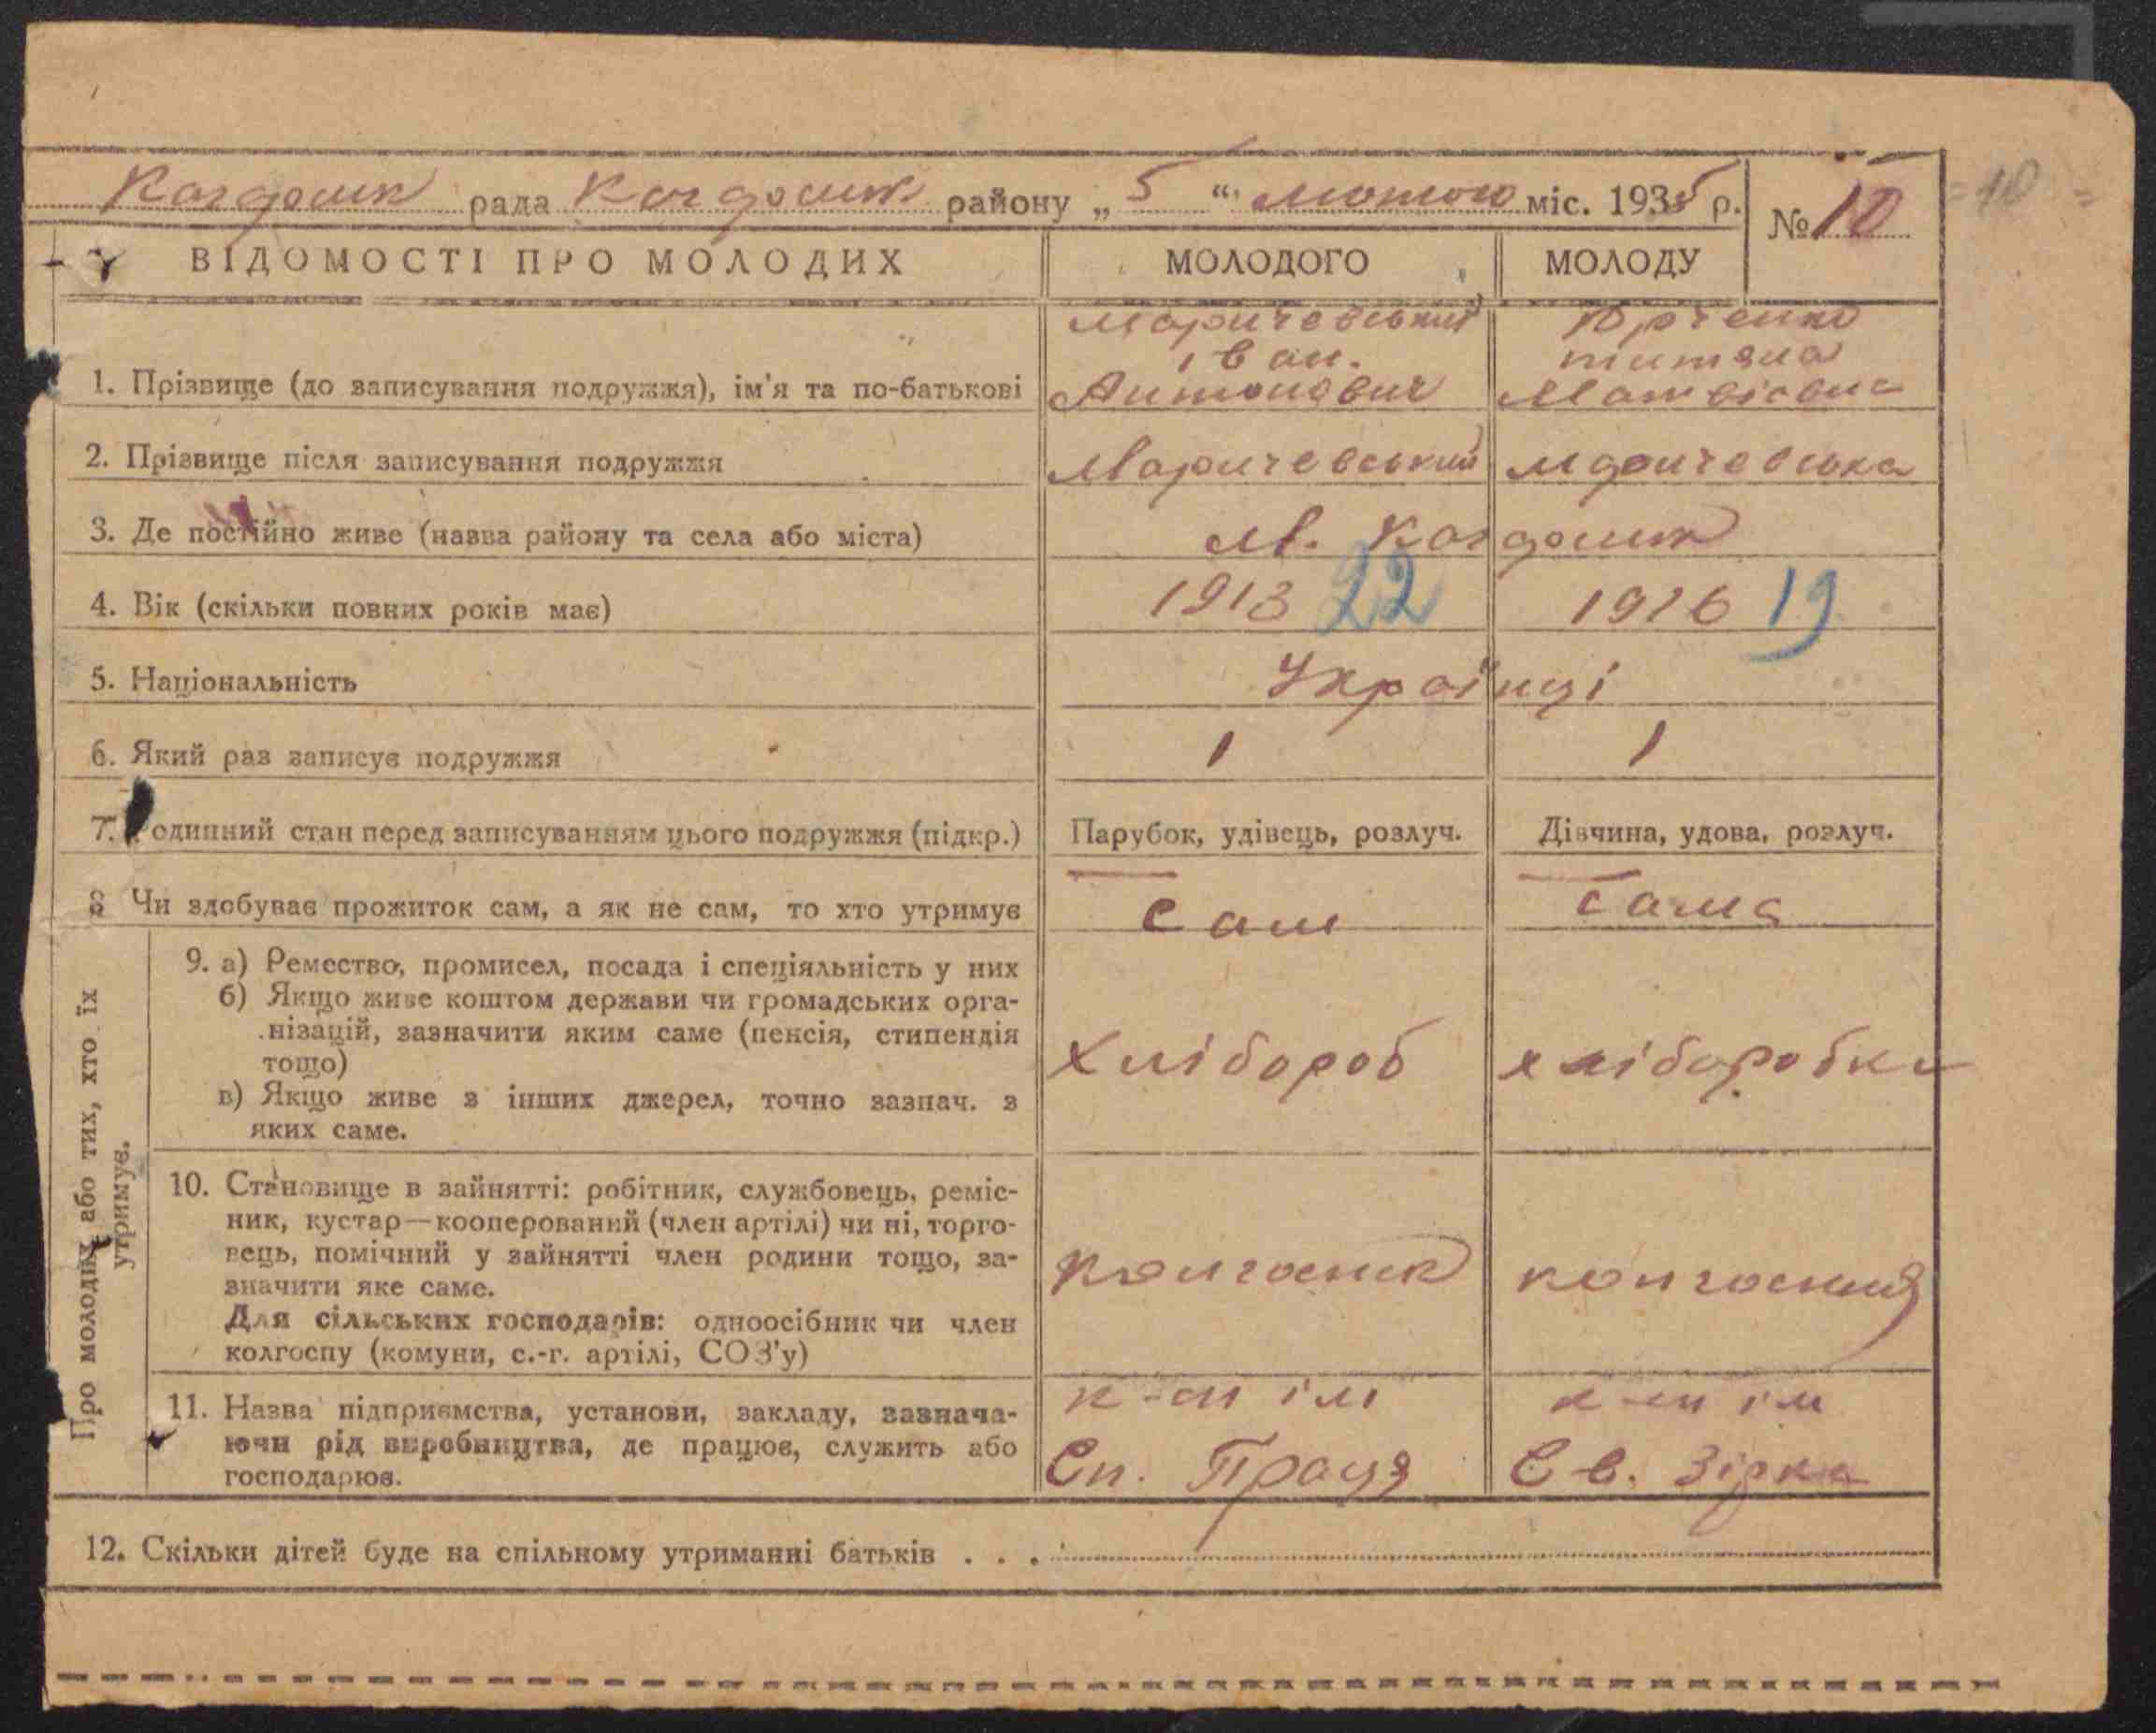 Кагарлик рада Кагарлик району „5“ лютого міс. 1935 р. № 10
= 10 =
ВІДОМОСТІ ПРО МОЛОДИХ МОЛОДОГО МОЛОДУ
1. Прізвище (до записування подружжя), ім'я та по-батькові
Маричевський
Іван.
Антонович
Юрченко
Матвієвна
2. Прізвище після записування подружжя Маричевський Маричевська
3. Де постійно живе (назва району та села або міста) М. Кагарлик
4. Вік (скільки повних років має) 1913 22 1916 19
5. Національність Українці
6. Який раз записує подружжя 1 1
7. Родинний стан перед записуванням цього подружжя (підкр.) Парубок, удівець, розлуч. Дівчина, удова, розлуч.
8 Чи здобуває прожиток сам, а як не сам, то хто утримує Сам Сама
Про молодих або тих, хто їх
утримує.
9. а) Ремество, промисел, посада і спеціяльність у них
б) Якщо живе коштом держави чи громадських орга-
нізацій, зазначити яким саме (пенсія, стипендія
тощо)
в) Якщо живе з інших джерел, точно зазнач. з
яких саме.
Хлібороб хліборобка
10. Становище в зайнятті: робітник, службовець, реміс-
ник, кустар—кооперований (член артілі) чи ні, торго-
вець, помічний у зайнятті член родини тощо, за-
значити яке саме.
Для сільських господарів: одноосібник чи член
колгоспу (комуни, с.-г. артілі, СОЗ'у)
колгосник колгосниця
11. Назва підприємства, установи, закладу, зазнача-
ючи рід виробництва, де працює, служить або
господарює.
к-сп ім
Сп. Праця
к-сп ім
Св. Зірка
12. Скільки дітей буде на спільному утриманні батьків . . .